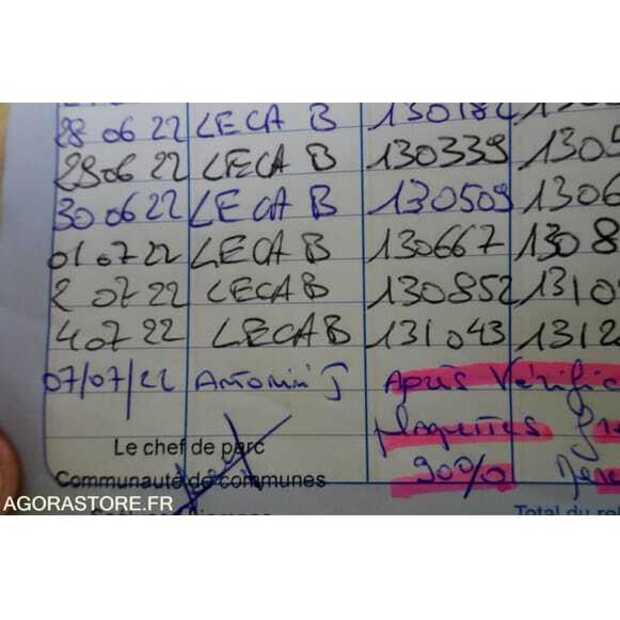 28 06 22 LECA B 130182
28 06 22 LECA B 130339 1305
30 06 22 LECA B 130509 1306
01 07 22 LECA B 130667 1308
2 07 22 LECA B 130852 1310
4 07 22 LECA B 131043 1312
07/07/22 Antonini J Après Vérific
plaquettes
Le chef de parc 90%
Communauté de communes
AGORASTORE.FR
Total du